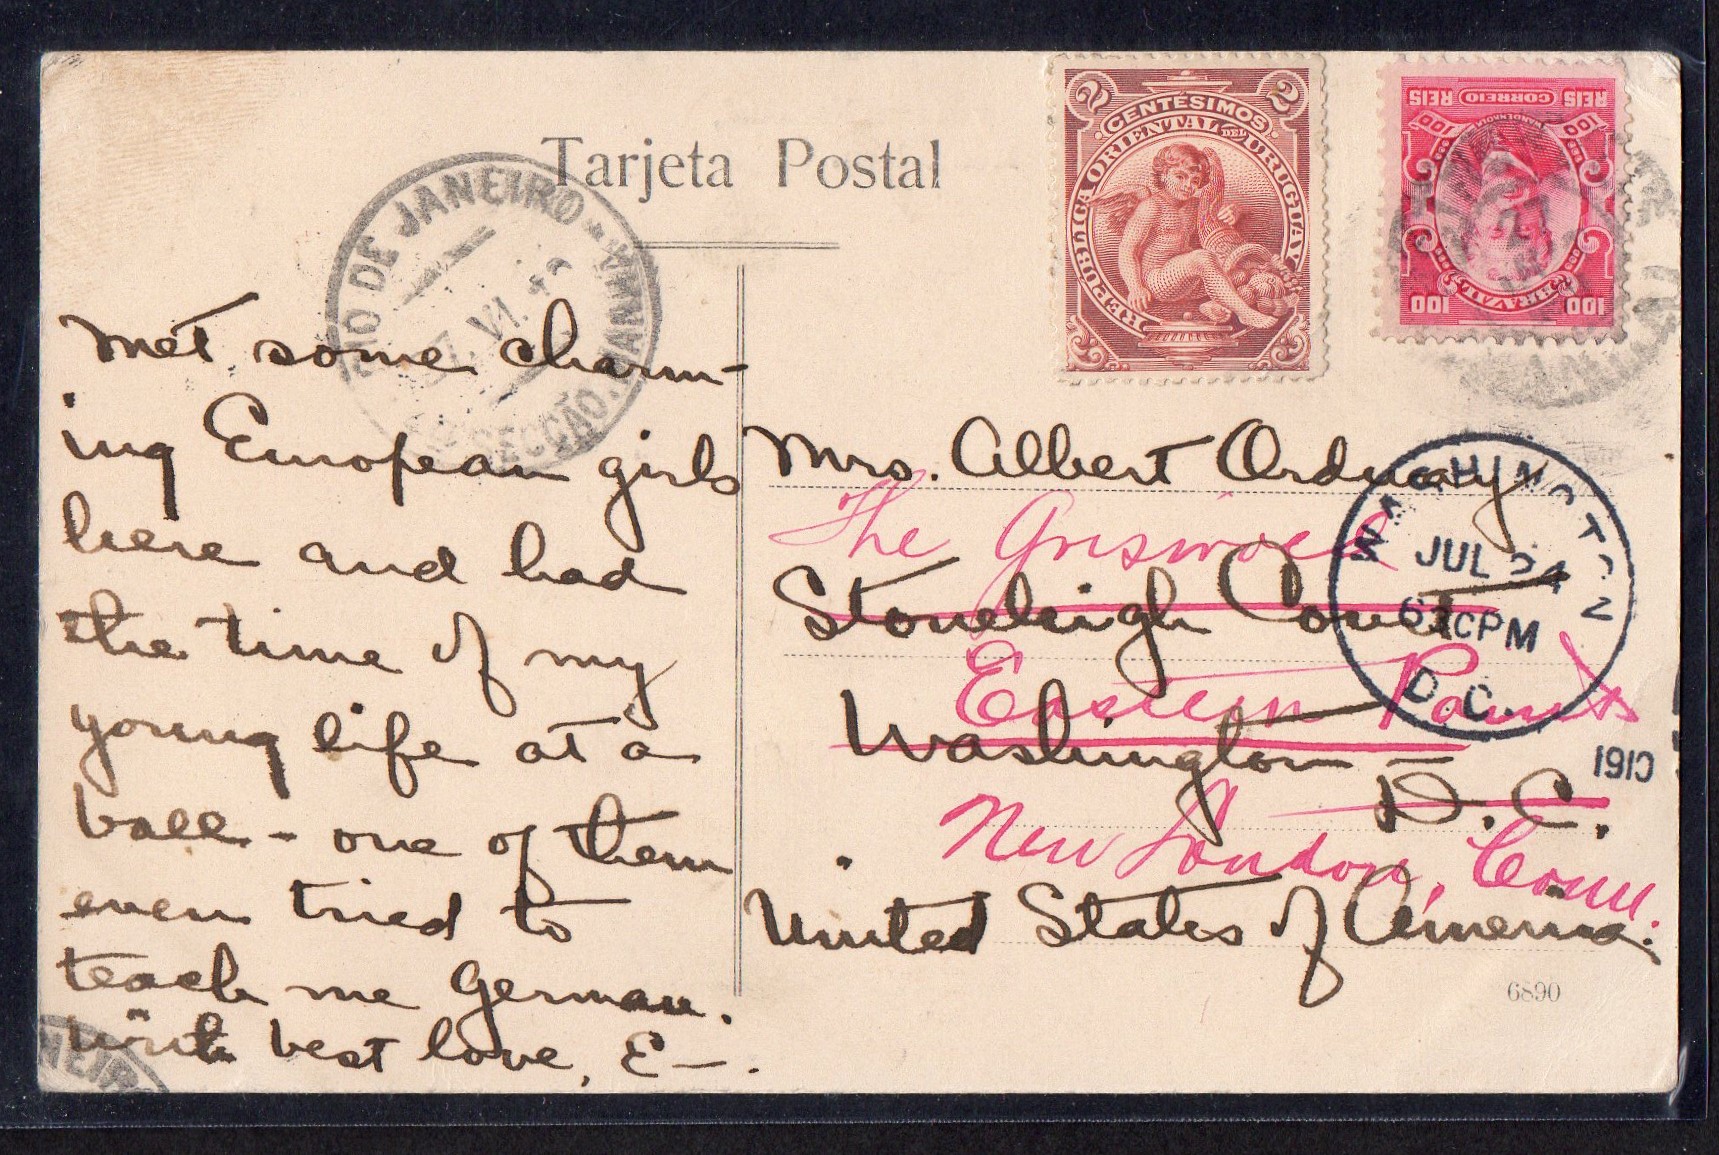 Tarjeta Postal
2 CENTÉSIMOS 2
REPUBLICA ORIENTAL DEL URUGUAY
REIS CORREIO REIS
100 100
BRAZIL
100 100
RIO DE JANEIRO
VI
SECÇÃO
met some charm-
ing European girls
here and had
the time of my
young life at a
ball - one of them
even tried to
teach me German.
With best love, E-.
Mrs. Albert Ordway
The Griswold
Stoneleigh Court
Eastern Point
Washington
D. C.
New London, Conn.
United States of America.
WASHINGTON
JUL 24
6 PM
D.C.
1910
6890
NEIR